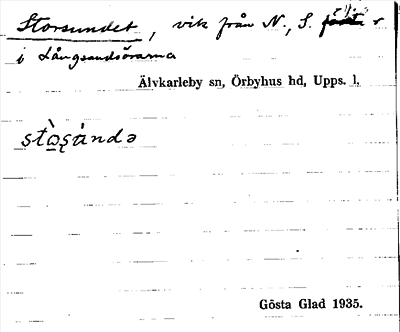 Storsundet, vik från N., S.
i Långsandsörarna
Älvkarleby sn, Örbyhus hd, Upps. l,
Gösta Glad 1935.